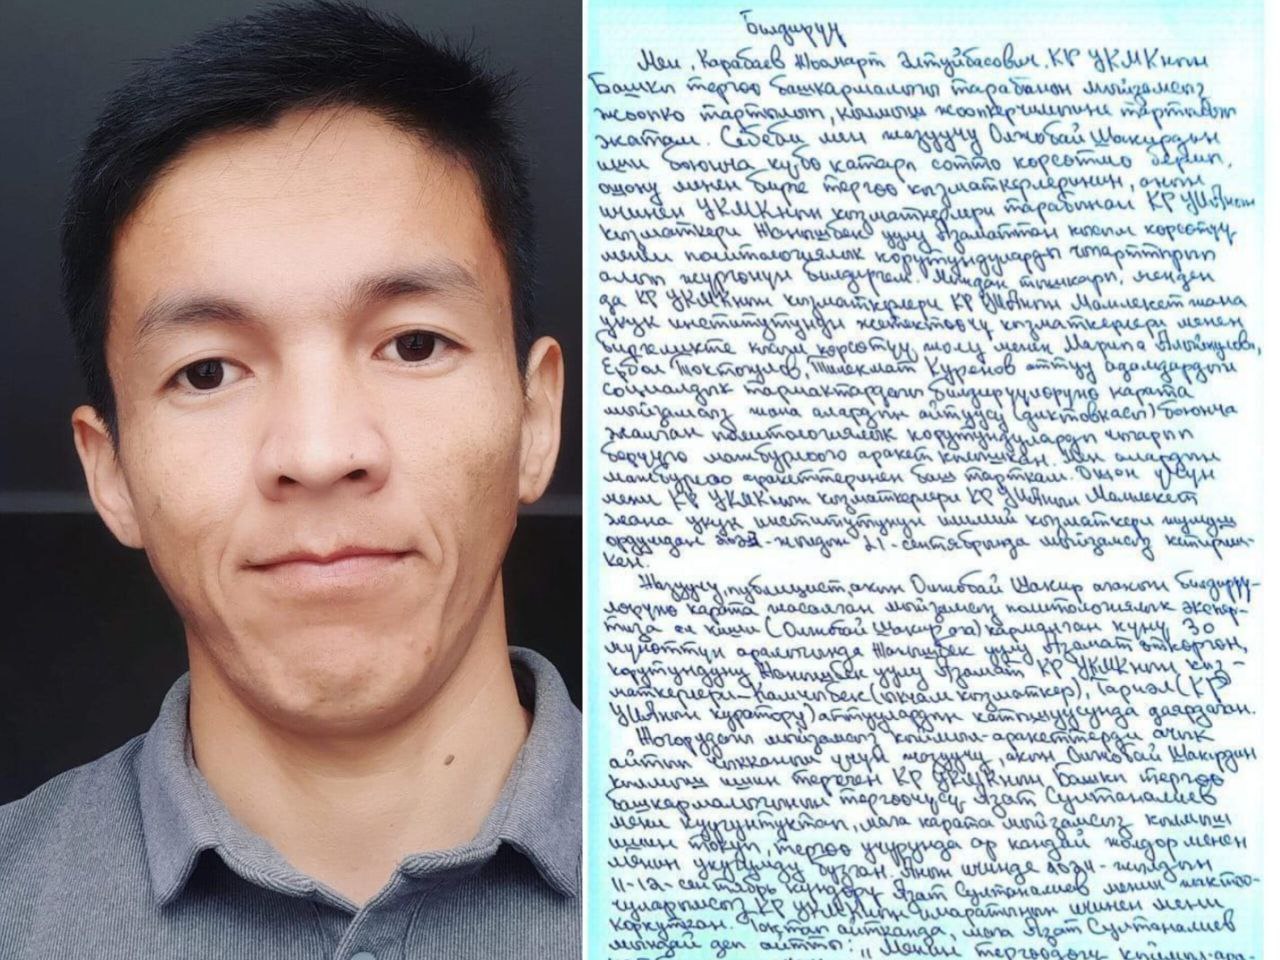 Билдирүү
Мен, Карабаев Жоомарт Элтуйбасович, КР УКМКнын
Башкы тергөө башкармалыгы тарабынан мыйзамсыз
жоопко тартылып, кылмыш жоопкерчилигине тартылып
жатам. Себеби мен жазуучу Олжобай Шакирдин
иши боюнча күбө катары сотто көрсөтмө берип,
ошону менен бирге тергөө кызматкерлеринин, анын
ичинен УКМКнын кызматкерлери тарабынан КР УИАнын
кызматкери Жанышбек уулу Азаматтан кысым көрсөтүү
менен политологиялык корутундуларды чыгарттырып
алып жүргөнүн билдиргем. Мындан тышкары, менден
да КР УКМКнын кызматкерлери КР УИАнын Мамлекет жана
укук институтунун жетектөөчү кызматкерлери менен
биргеликте кысым көрсөтүү жолу менен Марипа
Ербол Токтокулов, Тилекмат Куренов аттуу адамдардын
социалдык тармактардагы билдирүүлөрүнө карата
мыйзамсыз жана алардын айтуусу (диктовкасы) боюнча
жалган политологиялык корутундуларды чыгарып
берүүгө мажбурлоого аракет кылышкан. Мен алардын
мажбурлоо аракеттеринен баш тарткам. Ошон үчүн
мени КР УКМКнын кызматкерлери КР УИАнын Мамлекет
жана укук институтунун илимий кызматкери жумуш
ордунан жылдын 21-сентябрында мыйзамсыз кетириш-
кен.
Жазуучу, публицист, акын Олжобай Шакир агайын билдирүү-
лөрүнө карата жасалган мыйзамсыз политологиялык экспер-
тиза ал киши (Олжобай Шакир ага) кармалган күнү, 30
мүнөттүн аралыгында Жанышбек уулу Азамат өткөргөн,
корутундуну Жанышбек уулу Азамат КР УКМКнын кыз-
маткерлери - Камчыбек (ыкчам кызматкер), Тариэл (КР
УИАнын куратору) аттуулардын катышуусунда даярдаган.
Жогорудагы мыйзамсыз кыймыл-аракеттерди ачык
айтып чыкканым үчүн жазуучу, акын Олжобай Шакирдин
кылмыш ишин терген КР УКМКнын Башкы тергөө
башкармалыгынын тергөөчүсү Азат Султаналиев
мени куугунтуктап, мага карата мыйзамсыз кылмыш
ишин токуп, тергөө учурунда ар кандай жолдор менен
менин укугумду бузган. Анын ичинде 2024-жылдын
11-12-сентябрь күндөрү Азат Султаналиев менин жактоо-
чуларымсыз КР УКМКнын имаратынын ичинен мени
коркуткан. Тактап айтканда, мага Азат Султаналиев
мындай деп айтты: "Менин тергөөдөгү кыймыл-ара-